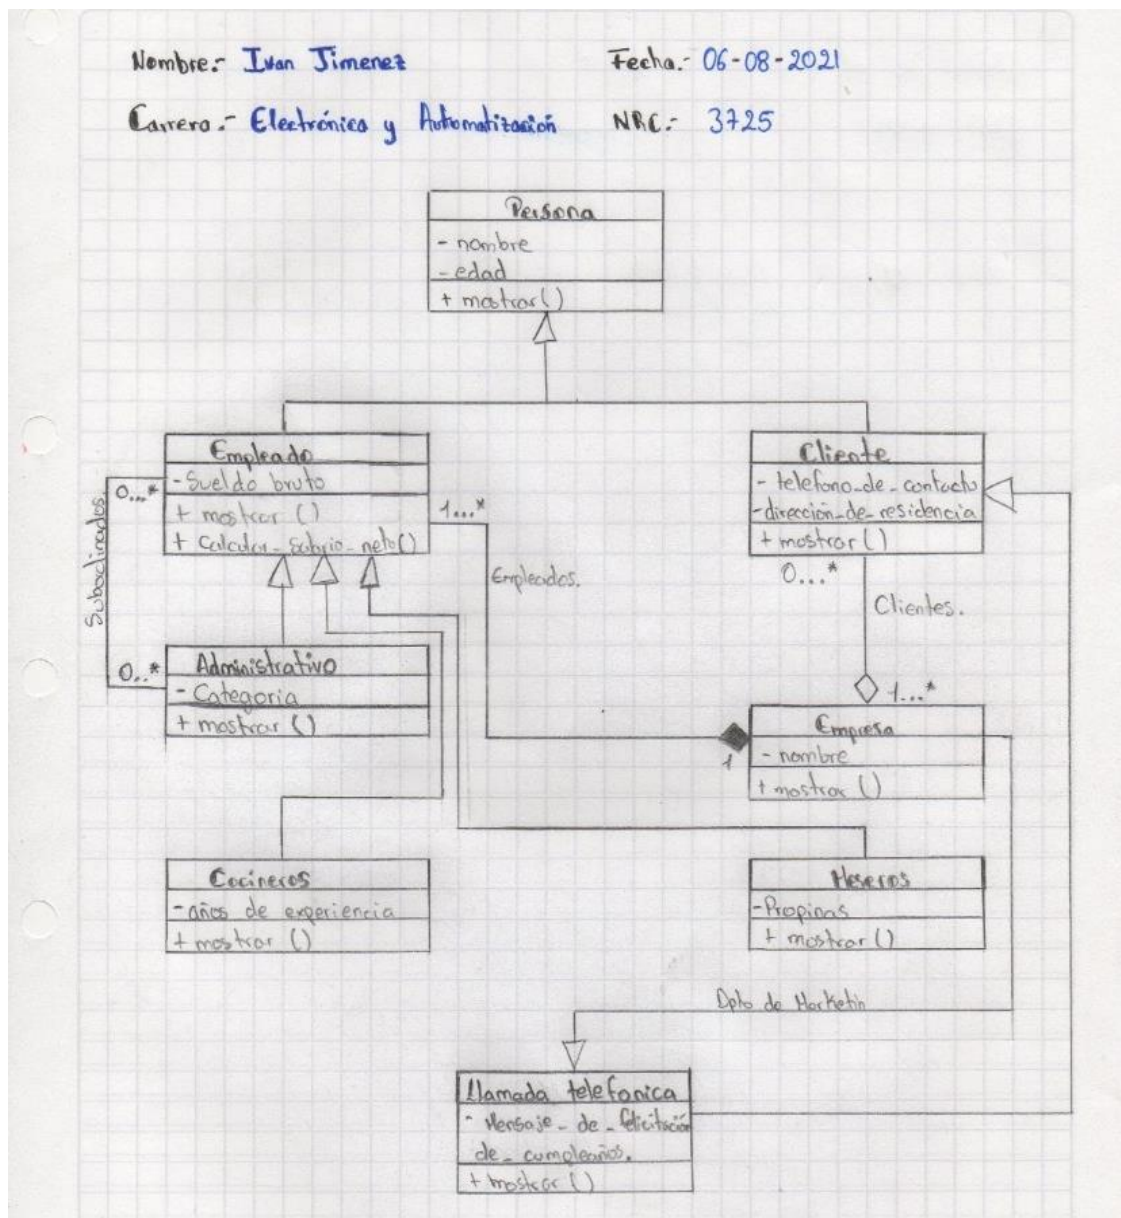 Nombre.- Ivan Jimenez
Fecha.- 06-08-2021
Carrera.- Electrónica y Automatización
NRC.- 3725
Persona
- nombre
- edad
+ mostrar()
Empleado
- Sueldo bruto
+ mostrar ()
+ Calcular_Salario_neto()
Cliente
- telefono_de_contacto
- dirección_de_residencia
+ mostrar()
0...*
1...*
Subordinados.
Empleados.
0...*
Clientes.
0..*
Administrativo
- Categoria
+ mostrar ()
1...*
1
Empresa
- nombre
+ mostrar ()
Cocineros
- años de experiencia
+ mostrar ()
Meseros
- Propinas
+ mostrar ()
Dpto de Marketin
Llamada telefonica
- Mensaje_de_felicitación
de_cumpleaños.
+ mostrar ()